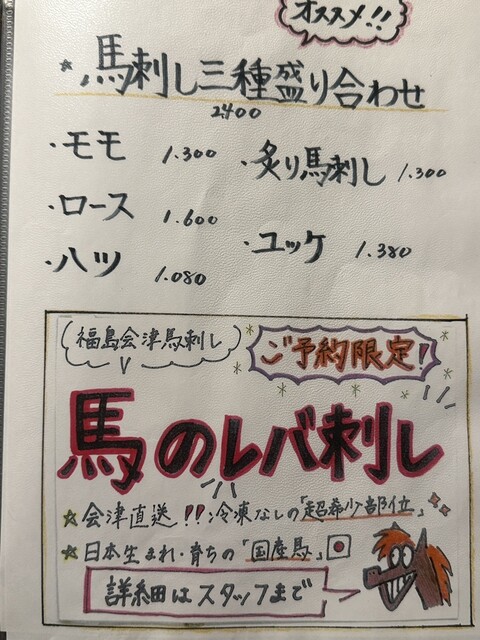 オススメ!!
★馬刺し三種盛り合わせ
2.400
・モモ 1.300
・炙り馬刺し 1.300
・ロース 1.600
・ユッケ 1.380
・ハツ 1.080
福島会津馬刺し
ご予約限定!
馬のレバ刺し
★会津直送!!冷凍なしの「超希少部位」
★日本生まれ・育ちの「国産馬」
詳細はスタッフまで